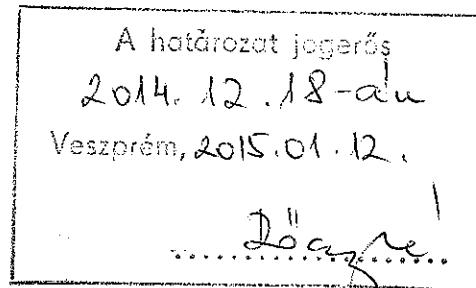 A határozat jogerős
2014. 12. 18-án
Veszprém, 2015.01.12.